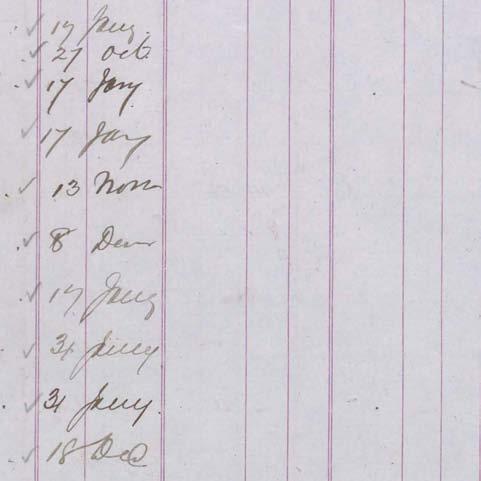 ✓ 17 Jany
✓ 27 Oct
✓ 17 Jany
✓ 17 Jany
✓ 13 Novr
✓ 8 Decr
✓ 17 Jany
✓ 31 Jany
✓ 31 Jany
✓ 18 Dec